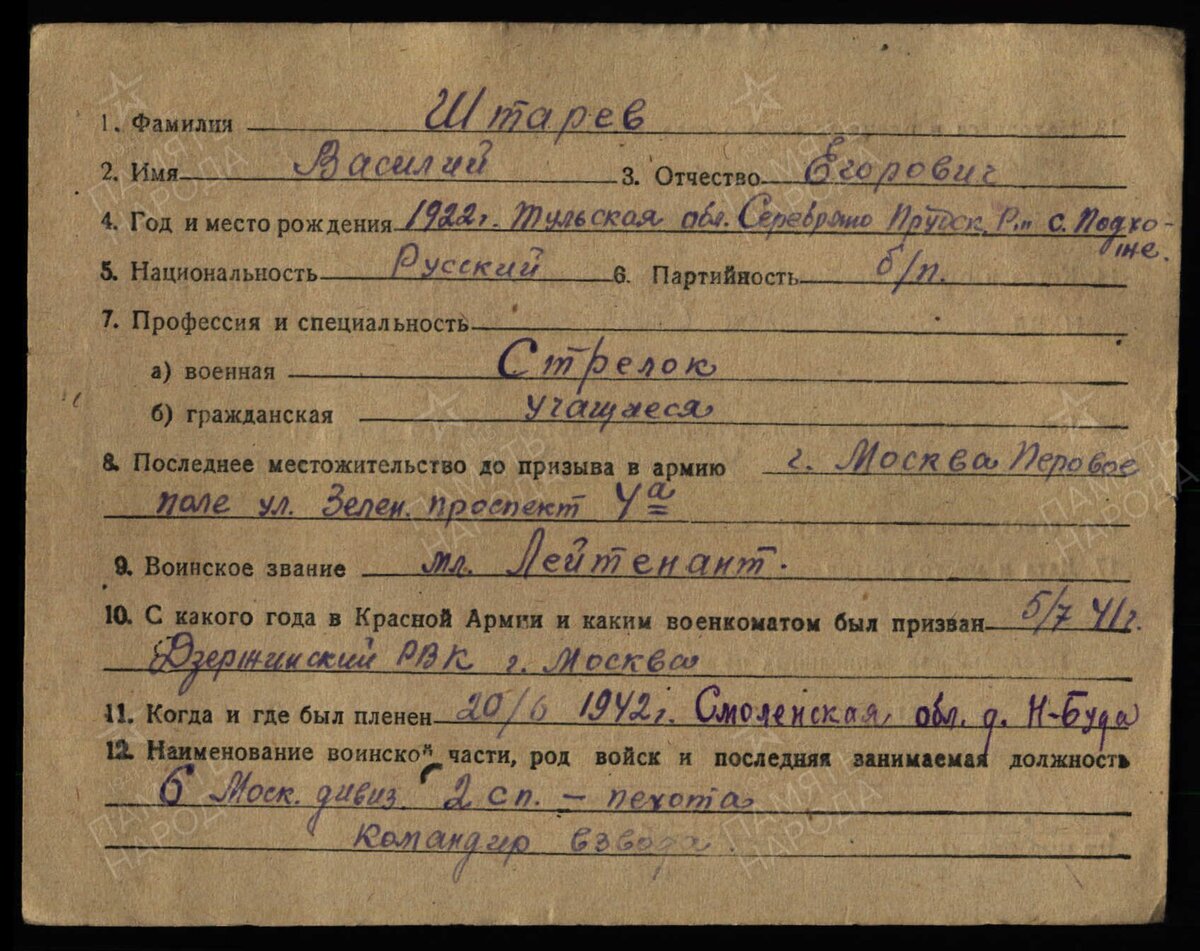 1. Фамилия Штарев
2. Имя Василий 3. Отчество Егорович
4. Год и место рождения 1922 г. Тульская обл. Серебряно Прудск. Р-н с. Подхо-
же.
5. Национальность Русский 6. Партийность б/п.
7. Профессия и специальность
а) военная Стрелок
б) гражданская учащиеся
8. Последнее местожительство до призыва в армию г. Москва Перовое
поле ул. Зелен. проспект 4а
9. Воинское звание мл. Лейтенант.
10. С какого года в Красной Армии и каким военкоматом был призван 5/7 41 г.
Дзержинский РВК г. Москва
11. Когда и где был пленен 20/6 1942 г. Смоленская обл. д. Н-Буда
12. Наименование воинской части, род войск и последняя занимаемая должность
6 Моск. дивиз. 2 сп. – пехота
командир взвода.
ПАМЯТЬ НАРОДА
ПАМЯТЬ НАРОДА
ПАМЯТЬ НАРОДА
ПАМЯТЬ НАРОДА
ПАМЯТЬ НАРОДА
ПАМЯТЬ НАРОДА